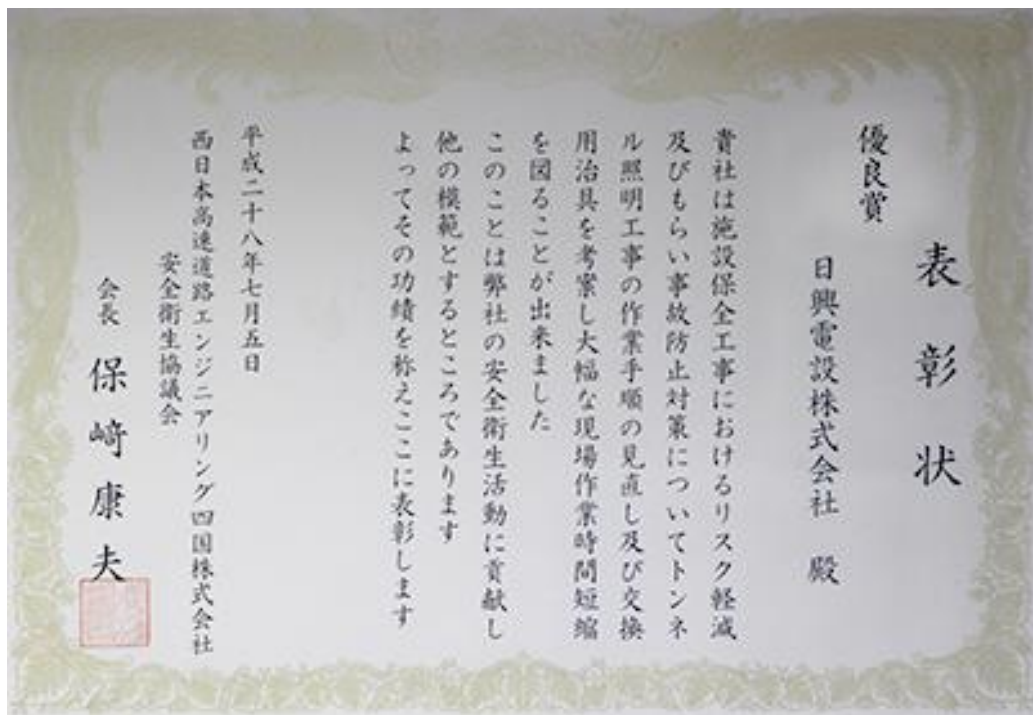 表彰状
優良賞
日興電設株式会社 殿
貴社は施設保全工事におけるリスク軽減
及びもらい事故防止対策についてトンネ
ル照明工事の作業手順の見直し及び交換
用治具を考案し大幅な現場作業時間短縮
を図ることが出来ました
このことは弊社の安全衛生活動に貢献し
他の模範とするところであります
よってその功績を称えここに表彰します
平成二十八年七月五日
西日本高速道路エンジニアリング四国株式会社
安全衛生協議会
会長 保﨑康夫